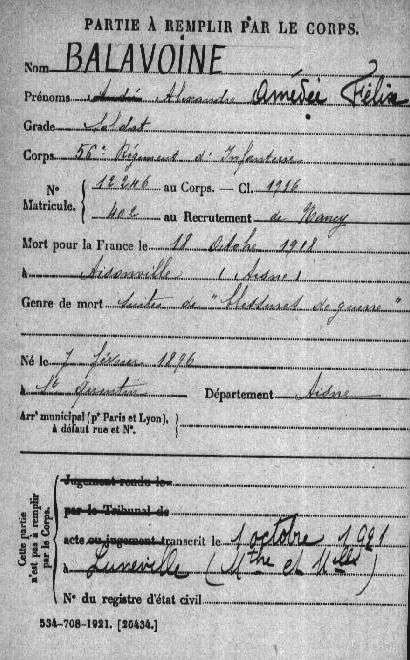 PARTIE À REMPLIR PAR LE CORPS.
Nom BALAVOINE
Prénoms André Alexandre Amédée Félix
Grade Soldat
Corps 56e Régiment d'Infanterie
N° Matricule. 12246 au Corps. — Cl. 1916
402 au Recrutement de Nancy
Mort pour la France le 18 octobre 1918
à Aisonville (Aisne)
Genre de mort suites de "blessures de guerre"
Né le 7 février 1896
à St Quentin Département Aisne
Arrt municipal (pr Paris et Lyon), à défaut rue et N°.
Cette partie n'est pas à remplir par le Corps.
Jugement rendu le
par le Tribunal de
acte ou jugement transcrit le 1 octobre 1921
à Lunéville (Mthe et Mlle)
N° du registre d'état civil
534-708-1921. [26434.]